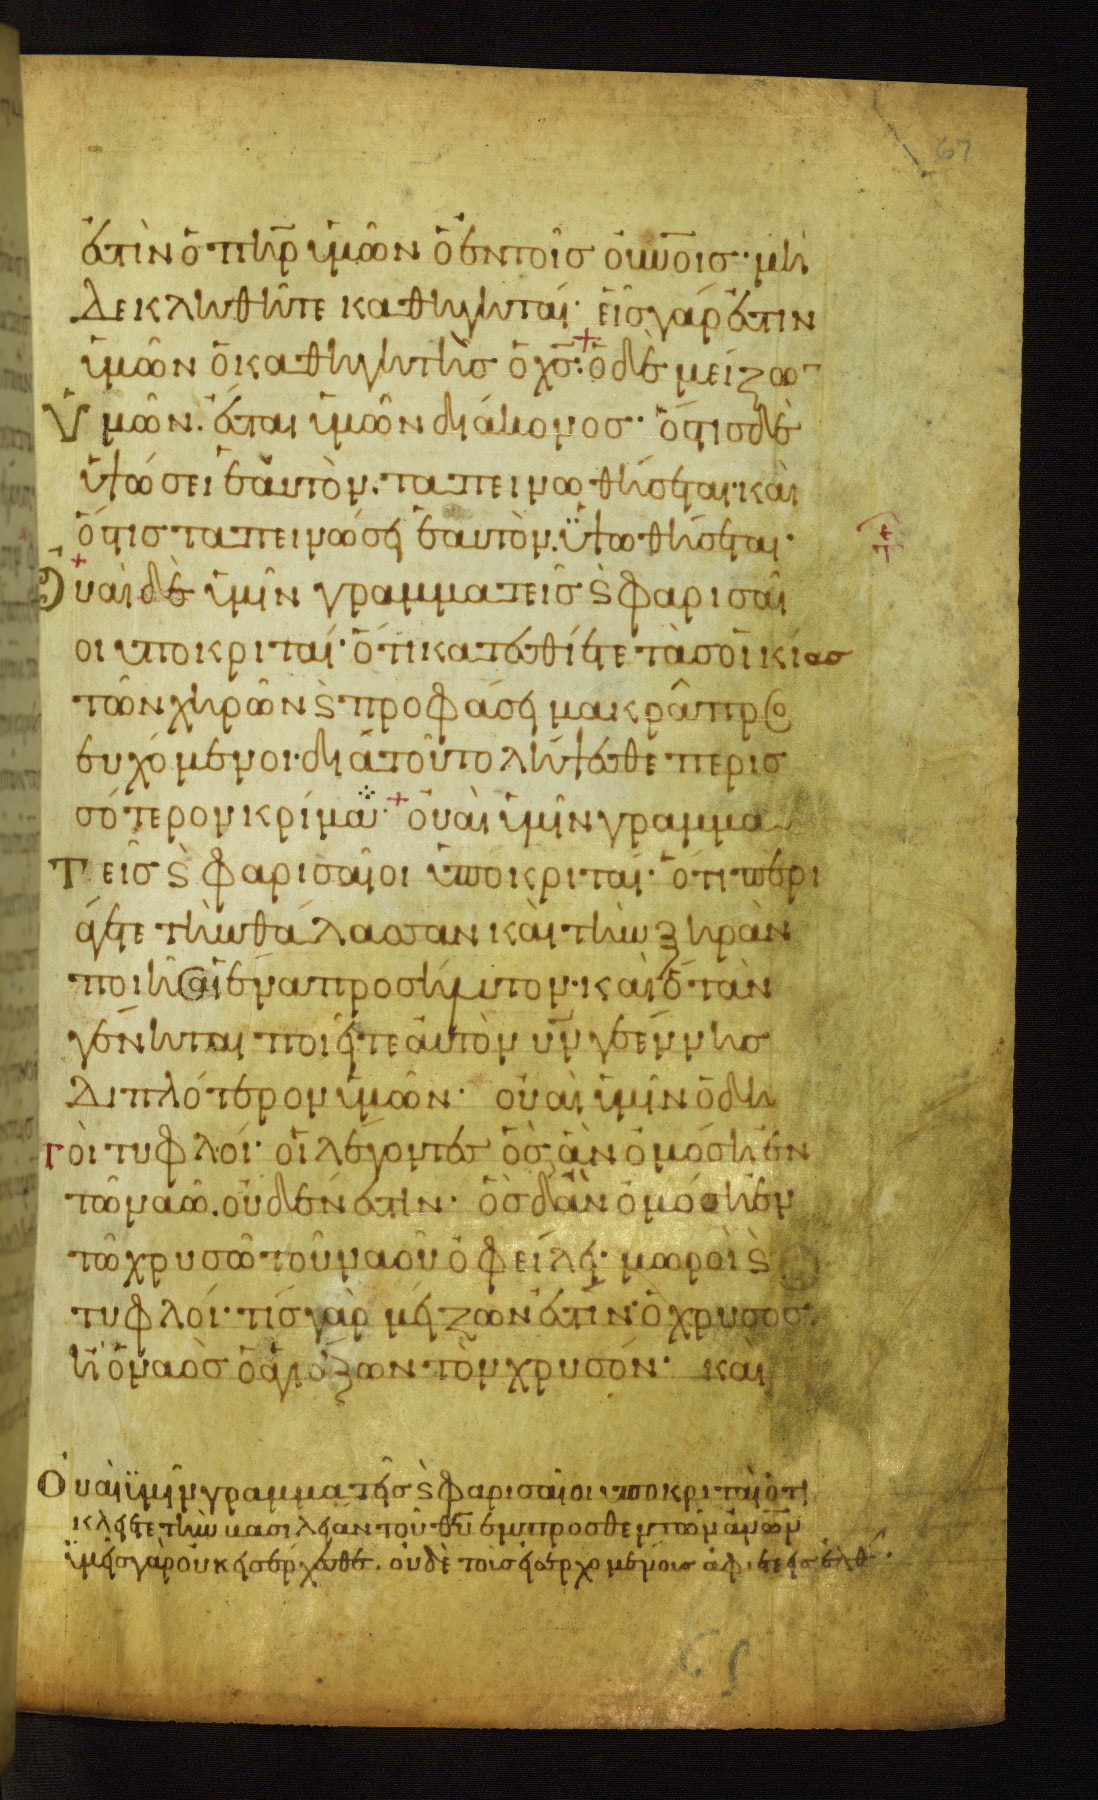 67
ἐστὶν ὁ πηρ ὑμῶν ὁ ἐν τοῖς οὐνοις· μὴ
δε κληθῆτε καθηγηταί· εἷς γάρ ἐστιν
ὑμῶν ὁ καθηγητὴς ὁ χς· ὁ δὲ μείζω
ὑμῶν. ἔσται ὑμῶν διάκονος· ὅστις δὲ
ὑψώσει ἑαυτὸν. ταπεινωθήσεται· καὶ
ὅστις ταπεινώσει ἑαυτὸν. ὑψωθήσεται·
Οὐαὶ δὲ ὑμῖν γραμματεῖς ϗ φαρισαῖ
οι ὑποκριταί· ὅτι κατεσθίετε τὰς οἰκίας
τῶν χηρῶν ϗ προφάσει μακρᾶ προσ
ευχόμενοι· διὰ τοῦτο λήψεσθε περισ
σότερον κρίμα· οὐαὶ ὑμῖν γραμμα
τεῖς ϗ φαρισαῖοι ὑποκριταί· ὅτι περι
άγετε τὴν θάλασσαν καὶ τὴν ξηρὰν
ποιῆσαι ἕνα προσήλυτον· καὶ ὅταν
γένηται ποιεῖτε αὐτὸν υν γεέννης
διπλότερον ὑμῶν· οὐαὶ ὑμῖν ὁδη
γοὶ τυφλοί· οἱ λέγοντες ὃς ἂν ὀμόσῃ ἐν
τῶ ναῶ. οὐδέν ἐστιν· ὃς δ' ἂν ὀμόσῃ ἐν
τῶ χρυσῶ τοῦ ναοῦ ὀφείλει· μωροὶ ϗ
τυφλοί· τίς γὰρ μείζων ἐστὶν ὁ χρυσὸς
ἢ ὁ ναὸς ὁ ἁγιάζων τὸν χρυσόν· καὶ
Οὐαὶ ὑμῖν γραμματεῖς ϗ φαρισαῖοι ὑποκριταὶ ὅτι
κλείετε τὴν βασιλείαν τοῦ θυ ἔμπροσθεν τῶν ανων
ὑμεῖς γὰρ οὐκ εἰσέρχεσθε. οὐδὲ τοὺς εἰσερχομένους ἀφίετε εἰσελθ